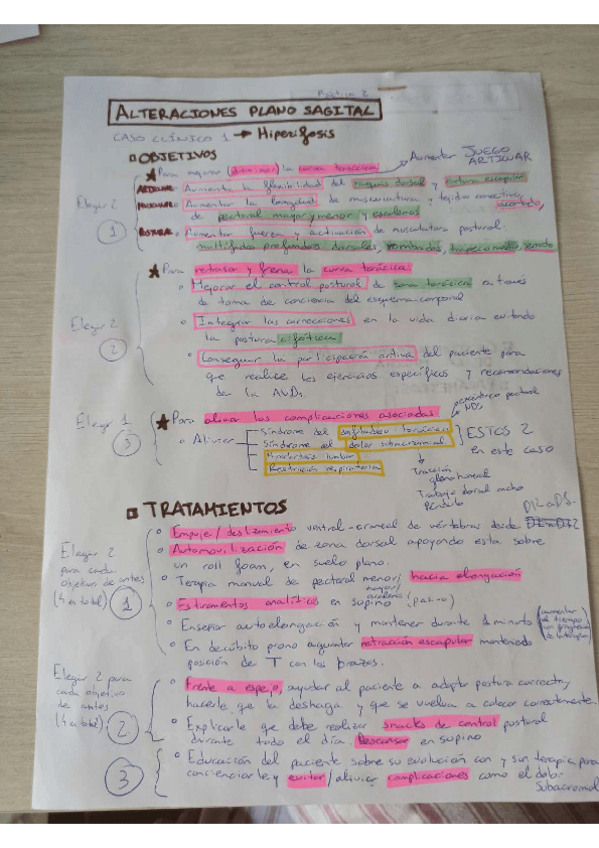 Práctica 2
ALTERACIONES PLANO SAGITAL
CASO CLÍNICO 1 → Hipercifosis
OBJETIVOS
Aumentar JUEGO ARTICULAR
★ Para mejorar (disminuir) la curva torácica
Elegir 2
1
ARTICULAR Aumentar la flexibilidad del raquis dorsal y cintura escapular
MUSCULAR Aumentar la longitud de musculatura y tejido conectivo acortado,
de pectoral mayor y menor y escalenos
POSTURAL Aumentar fuerza y activación de musculatura postural:
multífidos profundos dorsales, romboides, trapecio medio, serrato
★ Para retrasar y frenar la curva torácica:
Elegir 2
2
Mejorar el control postural de zona torácica a través
de toma de conciencia del esquema corporal
Integrar las correcciones en la vida diaria evitando
la postura cifótica
Conseguir la participación activa del paciente para
que realice los ejercicios específicos y recomendaciones
de la AVDs.
Elegir 1
3
★ Para aliviar las complicaciones asociadas
pectoral
NDS
Aliviar
Síndrome del desfiladero torácico
Síndrome del dolor subacromial
Hiperlordosis lumbar
Restricción respiratoria
ESTOS 2
en este caso
Tracción
glenohumeral
Trabajo dorsal ancho
Péndulo
TRATAMIENTOS
Elegir 2
para cada
objetivo de antes
(4 en total)
1
Empuje / deslizamiento ventral-craneal de vértebras desde D12 a D5.
Automovilización de zona dorsal apoyando esta sobre
un roll foam, en suelo plano.
Terapia manual de pectoral menor, mayor, hacia elongación
Estiramientos analíticos en supino
Enseñar autoelongación y mantener durante 1 minuto (aumentar el tiempo
En decúbito prono aguantar retracción escapular mantenida
posición de T con los brazos.
Elegir 2 para
cada objetivo
de antes
(4 en total)
2
Frente a espejo, ayudar al paciente a adoptar postura correcta,
hacerle que la deshaga y que se vuelva a colocar correctamente.
Explicarle que debe realizar snacks de control postural
durante todo el día. Descansar en supino
3
Educación del paciente sobre su evolución con y sin terapia, para
concienciarle y evitar/aliviar complicaciones como el dolor
subacromial